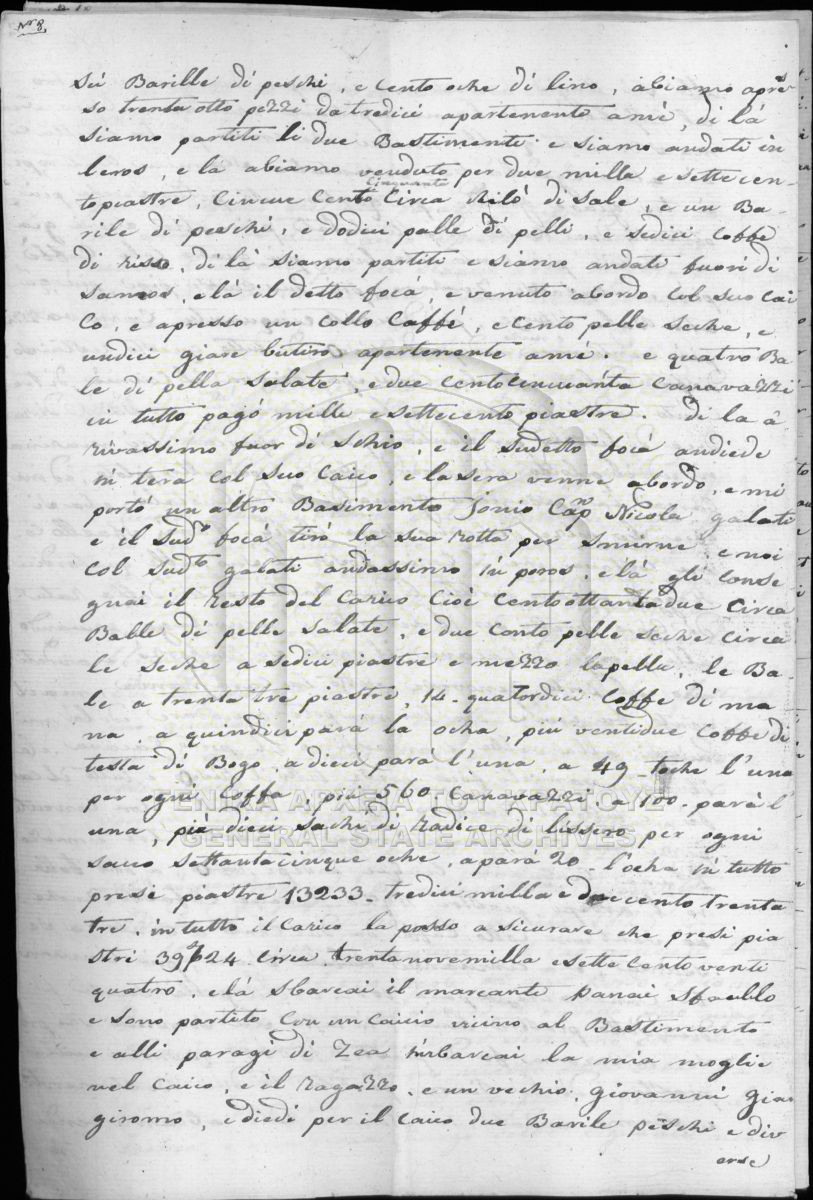 Nº 8,
sei Barille di peschi, e cento oche di lino, abiamo apres
so trenta otto pezzi da tredici apartenente amè, di là
siamo partiti li due Bastimenti e siamo andati in
leros, e là abiamo venduto per due milla e settecen-
cinquanta
topiastre, Cincue Cento Circa Kilò di sale, e un Ba-
rile di peschi, e dodici palle di pelli, e sedici Coffe
di risso, di là siamo partiti e siamo andati fuori di
samos, e là il detto focà, e venuto abordo col suo Cai
Co, e apresso un Collo Caffé, e Cento pelle seche, e
undici giare butiro apartenente amè. e quatro Ba
le di pella salate, e due centocincuanta Canavazzi
in tutto pagò mille e settecento piastre. Di la a
rivassimo fuor di Schio, e il sudetto focà andiede
in tera Col suo Caico, e la sera venne abordo, e mi
portò un altro Basimento Jonio Capº Nicola galati
e il sudº focà tirò la sua rotta per Smirne e noi
Col sudto galati andassimo in poros, e là gli Conse
gnai il resto del Carico Cioè Centottantadue Circa
Balle di pelle salate, e due Cento pelle seche Circa
le seche a sedici piastre e mezzo la pella, le Ba-
le a trenta tre piastre, 14. quatordici Coffe di ma
na, a quindici parà la ocha, più ventidue Coffe di
testa di Bogo, a dieci parà l'una, a 49 - oche l'una
per ogni Coffa, più 560 Canavazzi a 100. parà l'
una, più dieci sachi di radice di lissero per ogni
sacco settantacinque oche, a parà 20 - l'ocha in tutto
presi piastre 13233 - tredici milla e due cento trenta
tre, in tutto il Carico la posso a sicurare che presi pia
stri 39724 Circa trentanovemilla e sette Cento venti
quatro, e là sbarcai il marcante panai
e sono partito Con un Caicio vicino al Bastimento
e alli paragi di Zea inbarcai la mia moglie
nel Caico, e il ragazzo, e un vechio, Giovanni Gia
giromo, e diedi per il Caico due Barile peschi e div
erse
ΓΕΝΙΚΑ ΑΡΧΕΙΑ ΤΟΥ ΚΡΑΤΟΥΣ
GENERAL STATE ARCHIVES